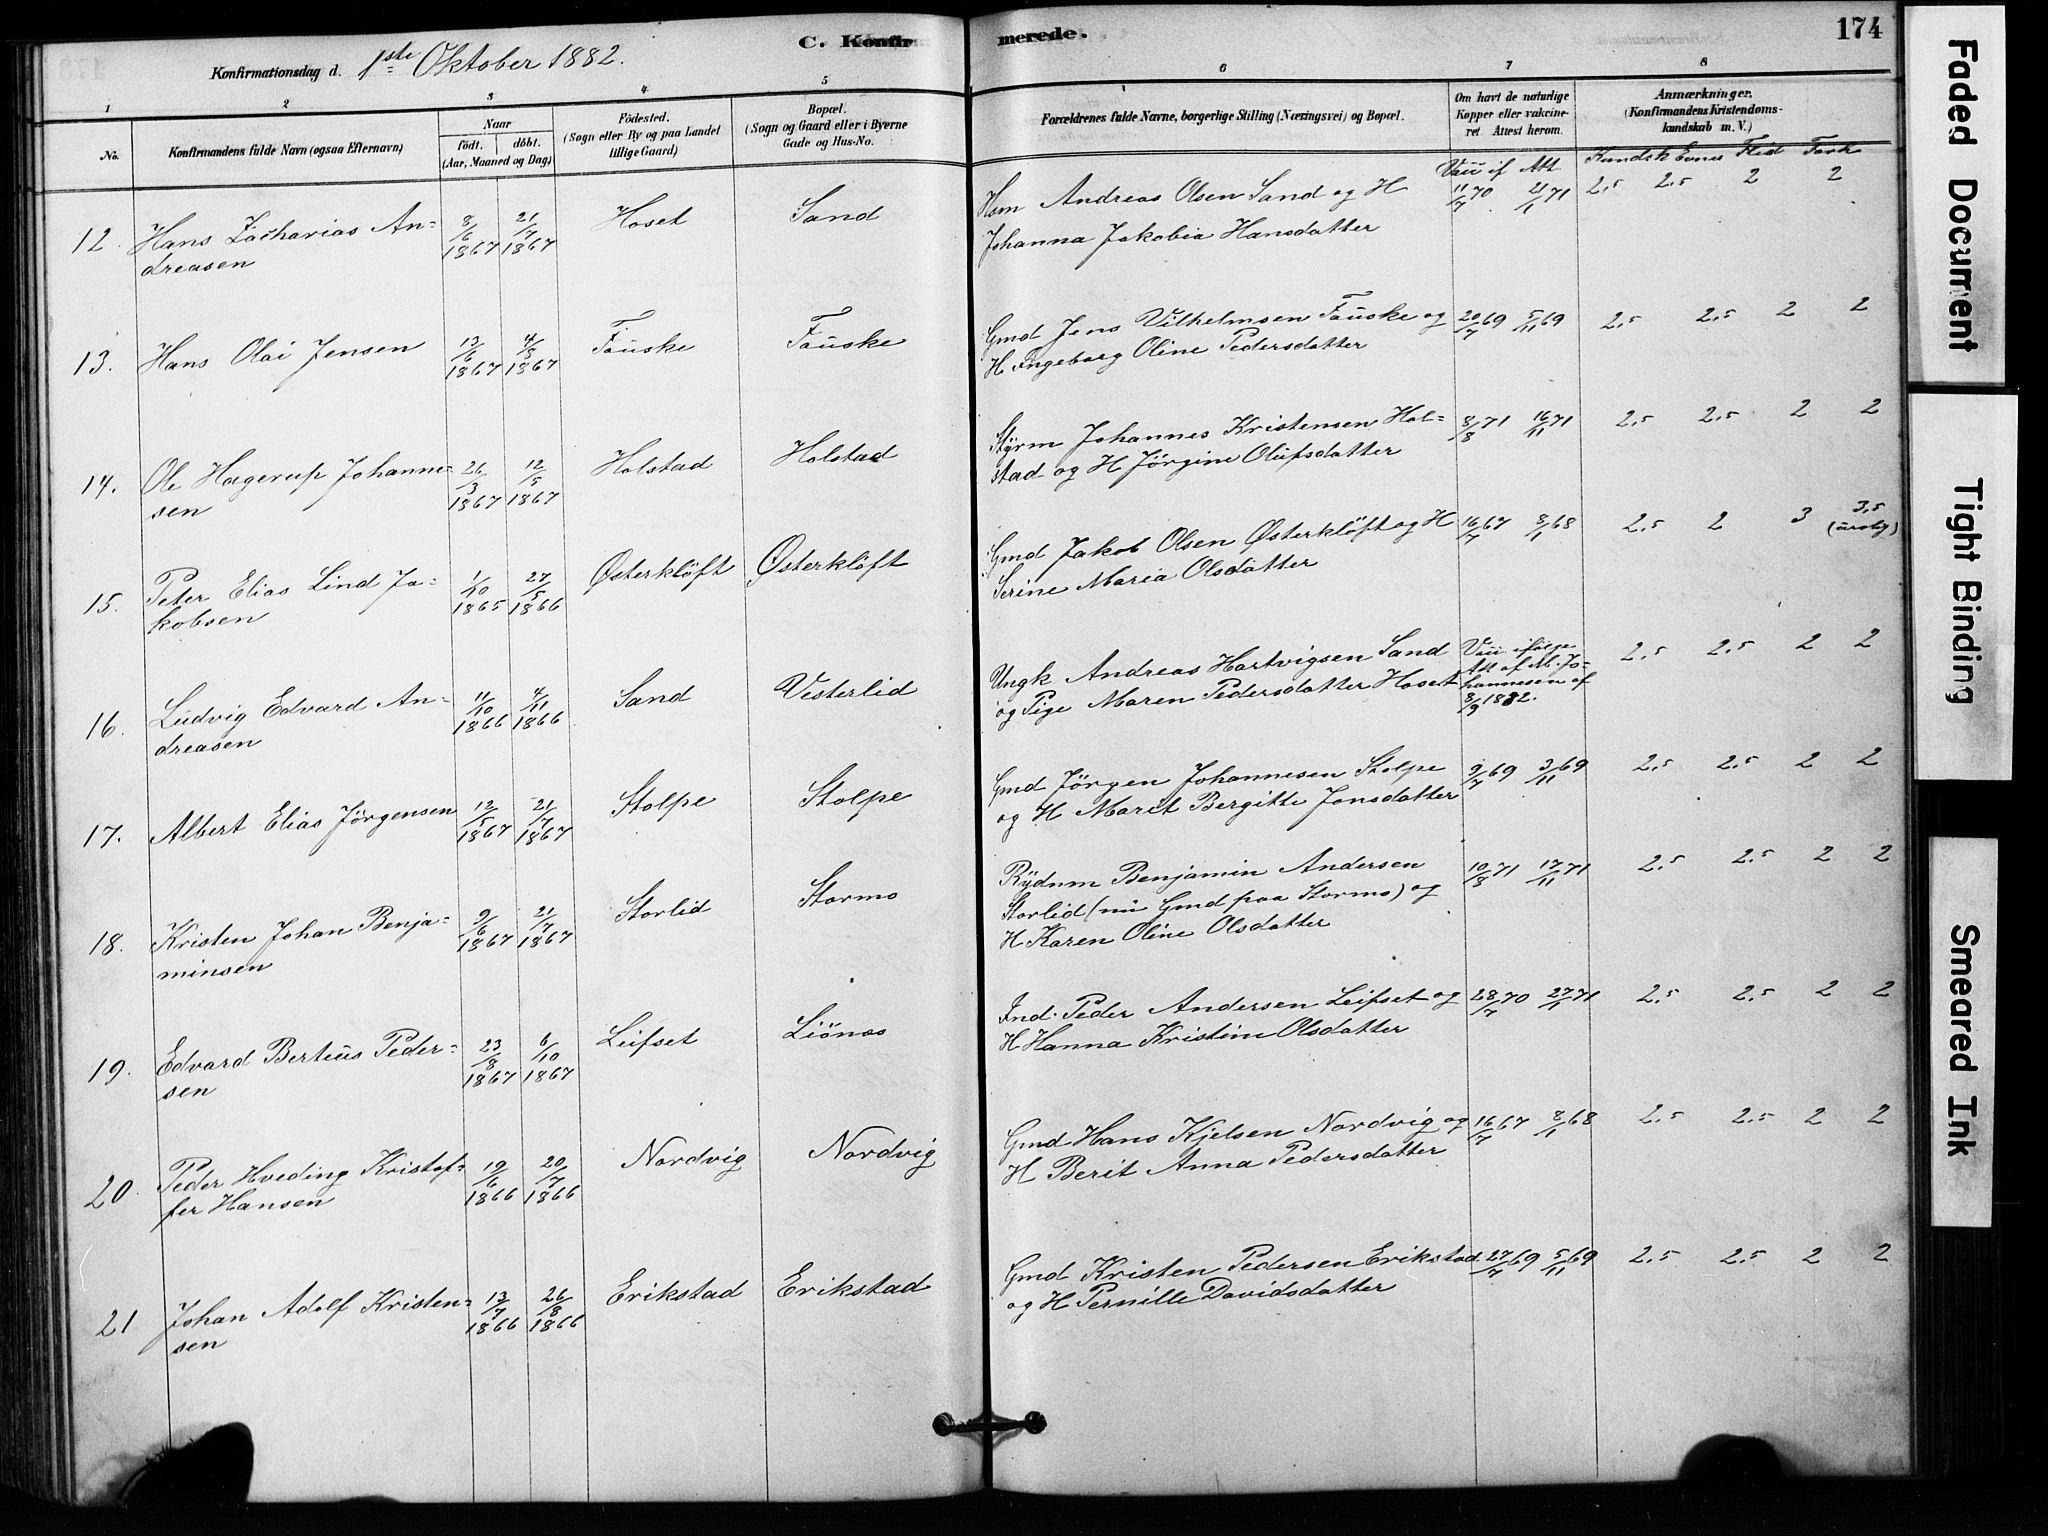 174
Konfirmationsdag d. 1ste Oktober 1882.
C. Konfir merede.
1 2 3 4 5 6 7 8
No.
Konfirmandens fulde Navn (ogsaa Efternavn)
Naar
födt. döbt.
(Aar, Maaned og Dag)
Födested.
(Sogn eller By og paa Landet
tillige Gaard)
Bopæl.
(Sogn og Gaard eller i Byerne
Gade og Hus-No.
Forældrenes fulde Navne, borgerlige Stilling (Næringsvei) og Bopæl.
Om havt de naturlige
Kopper eller vakcine-
ret. Attest herom.
Anmærkninger.
(Konfirmandens Kristendoms-
kundskab m. V.)
Vacc if Att. Kundsk Evner Flid Forh
12. Hans Zacharias An=
dreasen
8/6 1867 21/7 1867 Hoset Sand
Hsm Andreas Olsen Sand og H
Johanna Jakobia Hansdatter
11/7 70 21/1 71 2,5 2,5 2 2
13. Hans Olai Jensen
13/6 1867 4/8 1867 Fauske Fauske
Gmd Jens Vilhelmsen Fauske og
H Ingeborg Oline Pedersdatter
20/7 69 5/11 69 2,5 2,5 2 2
14. Ole Hagerup Johanne=
sen
26/3 1867 12/5 1867 Holstad Holstad
Styrm Johannes Kristensen Hol=
stad og H Jörgine Olufsdatter
8/8 71 16/11 71 2,5 2,5 2 2
15. Peter Elias Lind Ja=
kobsen
1/10 1865 27/5 1866 Østerklöft Østerklöft
Gmd Jakob Olsen Østerklöft og H
Serine Maria Olsdatter
16/7 67 8/1 68 2,5 2 3 3,5
(urolig)
16. Ludvig Edvard An=
dreasen
11/10 1866 4/11 1866 Sand Vesterlid
Ungk Andreas Hartvigsen Sand
og Pige Maren Pedersdatter Hoset
Vacc ifølge
Att af M. Jo=
hannesen af
8/9 1882.
2,5 2,5 2 2
17. Albert Elias Jörgensen
12/5 1867 21/7 1867 Stolpe Stolpe
Gmd Jörgen Johannesen Stolpe
og H Marit Bergitte Jonsdatter
9/7 69 3/11 69 2,5 2,5 2 2
18. Kristen Johan Benja=
minsen
9/6 1867 21/7 1867 Storlid Stormo
Rydnm Benjamin Andersen
Storlid (nu Gmd paa Stormo) og
H Karen Oline Olsdatter
10/8 71 17/11 71 2,5 2,5 2 2
19. Edvard Berteus Peder=
sen
23/8 1867 6/10 1867 Leifset Liönes
Ind. Peder Andersen Leifset og
H Hanna Kristine Olsdatter
28/7 70 27/1 71 2,5 2,5 2 2
20. Peder Hveding Kristof=
fer Hansen
19/6 1866 20/7 1866 Nordvig Nordvig
Gmd Hans Kjelsen Nordvig og
H Berit Anna Pedersdatter
16/7 67 8/1 68 2,5 2,5 2 2
21 Johan Adolf Kristen=
sen
13/7 1866 26/8 1866 Erikstad Erikstad
Gmd Kristen Pedersen Erikstad
og H Pernille Davidsdatter
27/7 69 5/11 69 2,5 2,5 2 2
Faded Document
Tight Binding
Smeared Ink